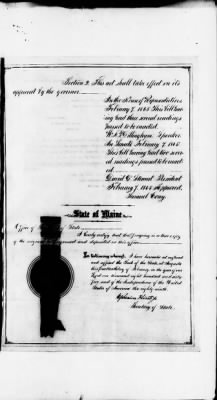 Section 2. This act shall take effect on its
approval by the governor.
In the House of Representatives
February 7. 1865 This bill hav
ing had three several readings
passed to be enacted.
W. A. P. Dillingham Speaker.
In Senate February 7. 1865.
This bill having had two seve
ral readings passed to be enact
ed.
David D. Stewart President
February 7. 1865 Approved.
Samuel Cony.
State of Maine
Office of Secretary of State.
I hereby certify that the foregoing is a true copy
of the original as approved and deposited in this office.
In testimony whereof, I have hereunto set my hand
and affixed the Seal of the State, at Augusta
this fourteenth day of February, in the year of our
Lord one thousand eight hundred and sixty
five and of the Independence of the United
States of America the eighty ninth.
Ephraim Flint Jr
Secretary of State.